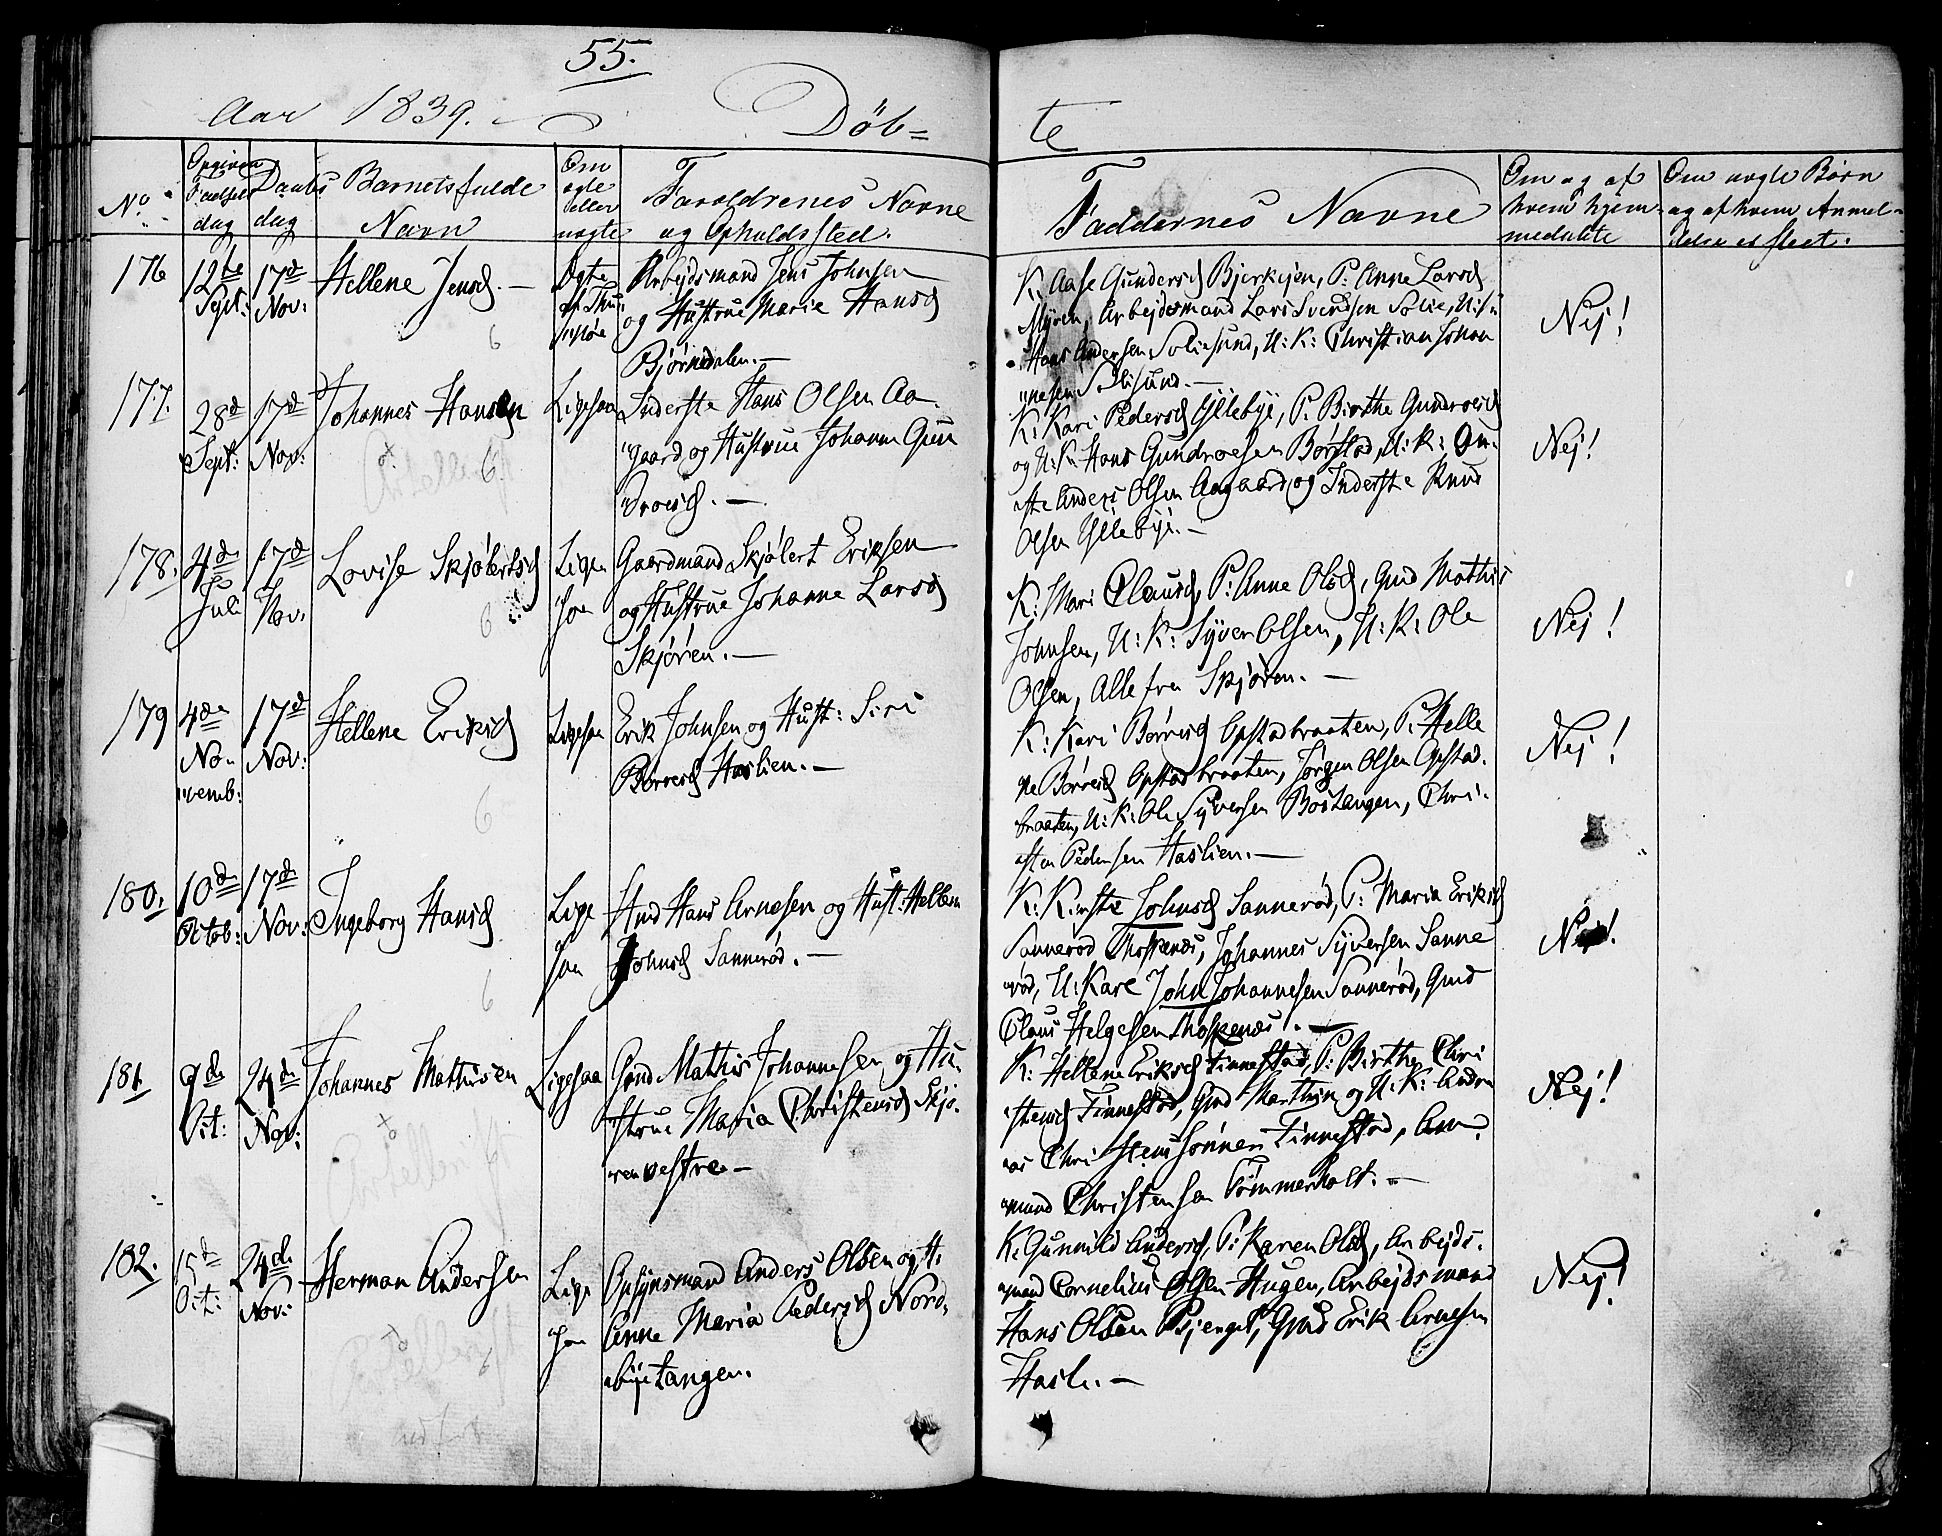 55.
Aar 1839.
Döb=
te
No.
Opgiven Fødsels dag
Daabs dag
Barnets fulde Navn
Om ægte eller uægte
Forældrenes Navne og Opholdssted.
Faddernes Navne
Om og af hvem hjemmedøbte
Om uægte Børn og af hvem Anmeldelse er skeet.
176
12te Sept:
17d Nov:
Hellene Jensd. —
6
Arbejdsmand Jens Johnsen
og Hustrue Marie Hansd
Björnedalen. —
K: Aase Gundersd Bjerkejen, P: Anne Larsd
Myren, Arbejdsmand Lars Svendsen Solie,
Hans Andersen Soliesund, U: K: Christian Johan
"nesen Soliesund. —
Nej!
177.
28d Sept:
17d Nov.
Johannes Hansen
6
Ligesaa
Inderste Hans Olsen Aa
"gaard og Hustrue Johanne Gun
"droesd. —
K: Kari Pedersd Yllebye, P: Birthe Gundroesd
og U: K: Hans Gundroesen Borstad, U: K:
Anders Olsen Aagaard og Inderste Knud
Olsen Yllebye. —
Nej!
178.
4de Juli
17d Nov.
Lovise Skjölertsd
6
Ligesaa
Gaardmand Skjölert Eriksen
og Hustrue Johanne Larsd
Skjören. —
K: Mari Clausd, P: Anne Olsd, Gmd Mathis
Johnsen, U: K: Syver Olsen, U: K: Ole
Olsen, Alle fra Skjören. —
Nej!
179
4de No-
"vemb:
17d Nov:
Hellene Eriksd
6
Ligesaa
Erik Johnsen og Hust: Siri
Börresd Haslien. —
K: Kari Börresd Opstadbraaten, P: Helle
ne Börresd Opstadbraaten, Jörgen Olsen Opstad-
braaten, U: K: Ole Syversen Bostangen, Chri-
sten Pedersen Haslien. —
Nej!
180.
10de Octob:
17de Nov:
Ingeborg Hansd
6
Ligesaa
Hmd Hans Arnesen og Hust: Hellene
Johnsd Sannerød. —
K: Kirstie Johnsd Sannerød, P: Maria Eriksd
Sannerød Thoskenæs, Johannes Syversen Sanne
"rød, U: Karl John Johannesen Sannerød, Gmd
Claus Helgesen Thoskenæs. —
Nej!
181.
9de Oct:
24de Nov:
Johannes Mathisen
Ligesaa
Gmd Mathis Johannesen og Hu-
strue Maria Christensd Skjö-
"ren vestre —
K: Hellene Eriksd Finnestad, P: Birthe Chri
"stensd Finnestad, Gmd Marthin og U: K: Andre
"as Christenssönner Finnestad, Am
"mund Christensen Tömmerholt. —
Nej!
182.
15d Oct:
24de Nov:
Herman Andersen
6
Ligesaa
Opsynsmand Anders Olsen og H:
Anne Maria Pedersd Nord-
"byetangen.
K: Gunnild Andersd, P: Karen Olsd, Arbejds-
"mand Cornelius Olsen Hugen, Arbejdsmand
Hans Olsen, Gmd Erik Arnesen
Hasle. —
Nej!